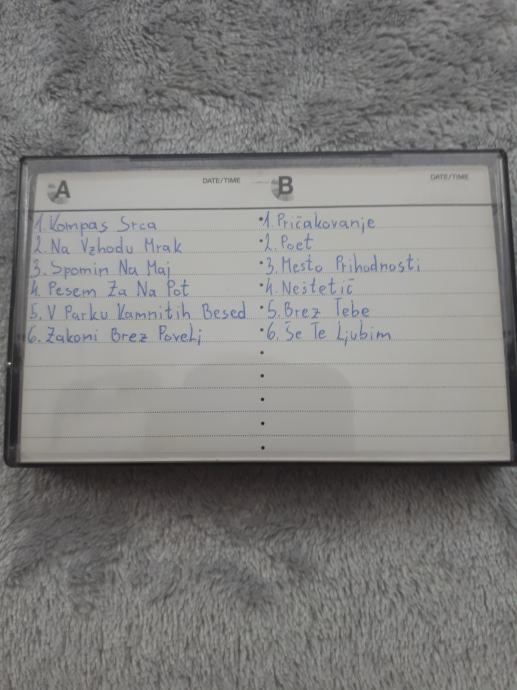 A DATE/TIME
1. Kompas Srca
2. Na Vzhodu Mrak
3. Spomin Na Maj
4. Pesem Za Na Pot
5. V Parku Kamnitih Besed
6. Zakoni Brez Povelj
B DATE/TIME
1. Pričakovanje
2. Poet
3. Mesto Prihodnosti
4. Neštetič
5. Brez Tebe
6. Še Te Ljubim